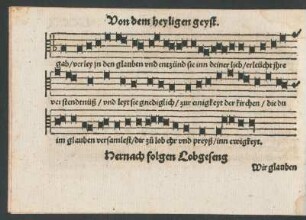 Von dem heyligen geyst.
gab/verley jn den glauben vnd entzünd sie inn deiner lieb/erleücht jhre
verstendenüß / vnd leyt sie gnediglich / zur einigkeyt der kirchen / die du
im glauben versamlest/dir zů lob ehr vnd preyß/inn ewigkeyt.
Hernach folgen Lobgeseng
Wir glauben